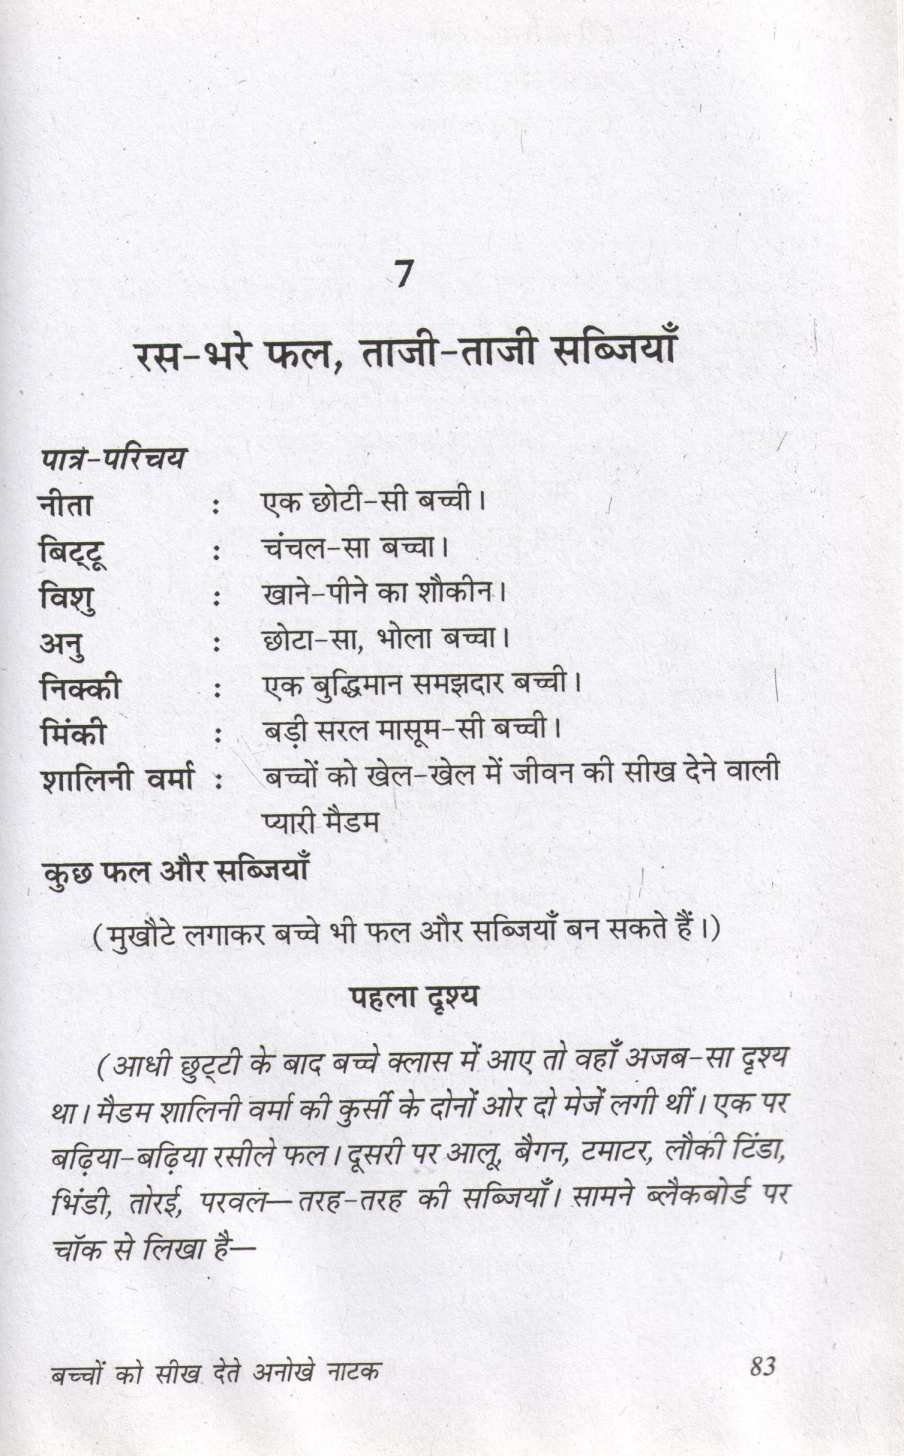 7
रस-भरे फल, ताजी-ताजी सब्जियाँ
पात्र-परिचय
नीता : एक छोटी-सी बच्ची।
बिट्टू : चंचल-सा बच्चा।
विशु : खाने-पीने का शौकीन।
अनु : छोटा-सा, भोला बच्चा।
निक्की : एक बुद्धिमान समझदार बच्ची।
मिंकी : बड़ी सरल मासूम-सी बच्ची।
शालिनी वर्मा : बच्चों को खेल-खेल में जीवन की सीख देने वाली
प्यारी मैडम
कुछ फल और सब्जियाँ
(मुखौटे लगाकर बच्चे भी फल और सब्जियाँ बन सकते हैं।)
पहला दृश्य
(आधी छुट्टी के बाद बच्चे क्लास में आए तो वहाँ अजब-सा दृश्य
था। मैडम शालिनी वर्मा की कुर्सी के दोनों ओर दो मेजें लगी थीं। एक पर
बढ़िया-बढ़िया रसीले फल। दूसरी पर आलू, बैगन, टमाटर, लौकी टिंडा,
भिंडी, तोरई, परवल—तरह-तरह की सब्जियाँ। सामने ब्लैकबोर्ड पर
चॉक से लिखा है—
बच्चों को सीख देते अनोखे नाटक 83